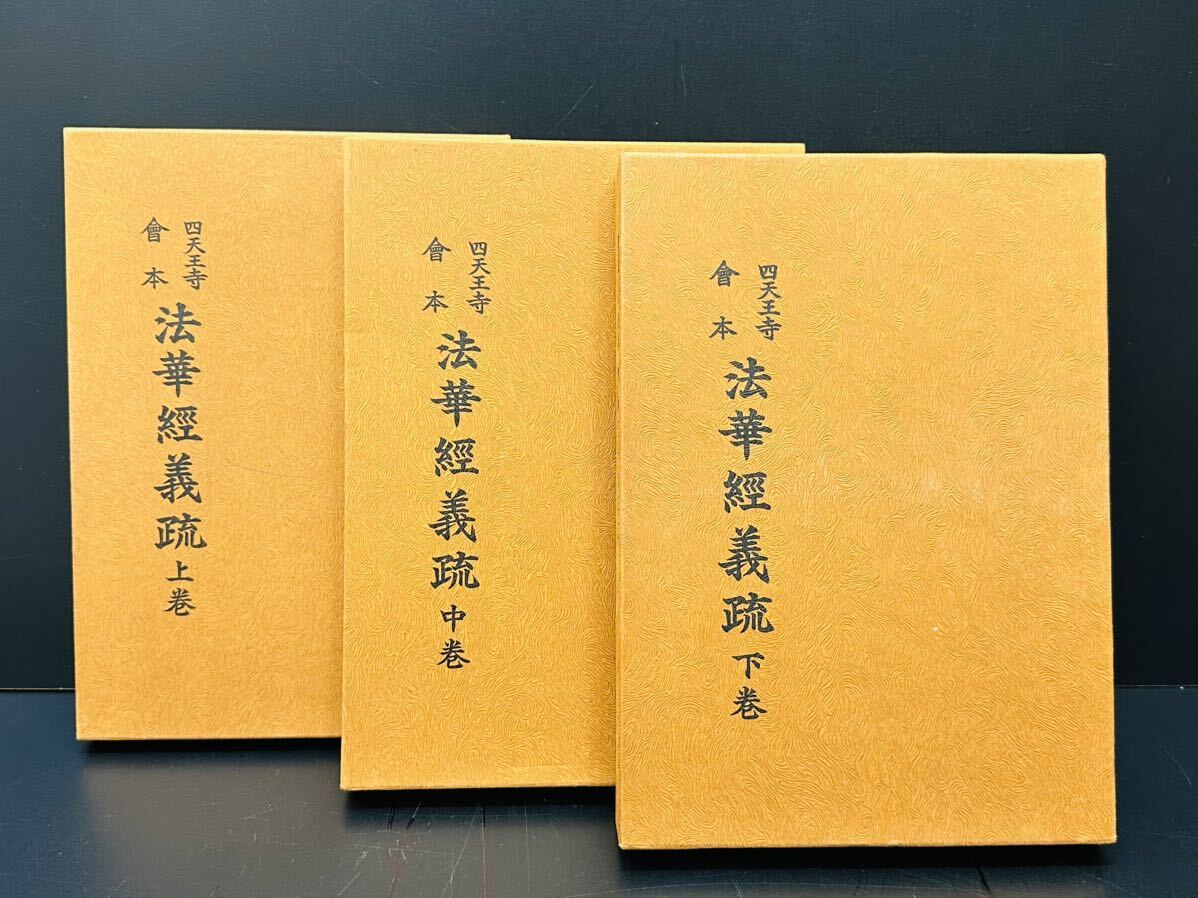 四天王寺
會本
法華經義疏 上卷
四天王寺
會本
法華經義疏 中卷
四天王寺
會本
法華經義疏 下卷